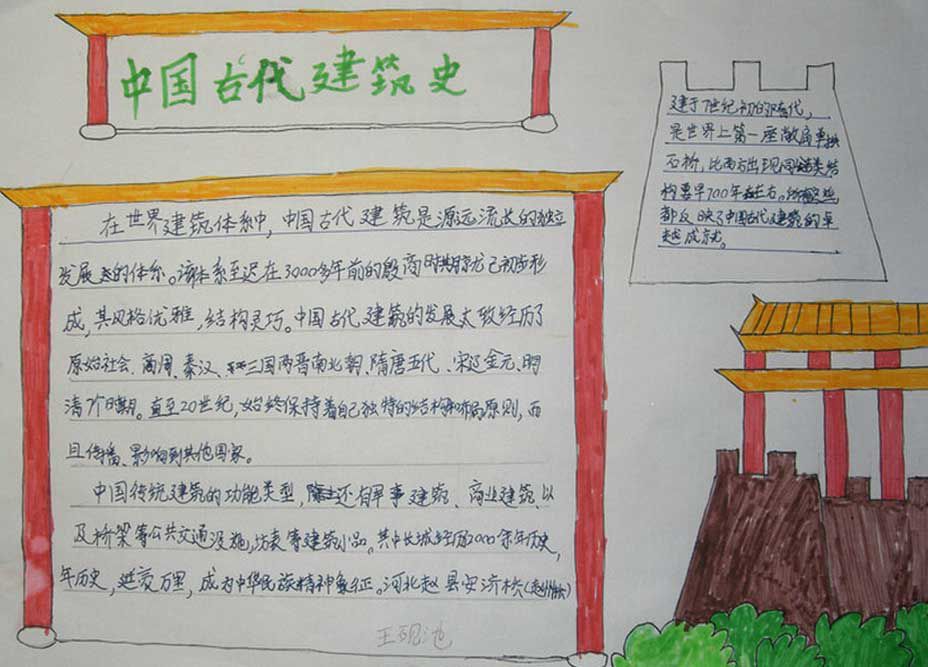 中国古代建筑史
在世界建筑体系中，中国古代建筑是源远流长的独立
发展态的体系。该体系至迟在3000多年前的殷商时期就已初步形
成，其风格优雅，结构灵巧。中国古代建筑的发展大致经历了
原始社会、商周、秦汉、三国两晋南北朝、隋唐五代、宋辽金元、明
清7个时期。直至20世纪，始终保持着自己独特的结构和布局原则，而
且传播、影响到其他国家。
中国传统建筑的功能类型，还有军事建筑、商业建筑、以
及桥梁等公共交通设施，坊表等建筑小品。其中长城经历2000余年历史，
年历史，延袤万里，成为中华民族精神象征。河北赵县安济桥（赵州桥）
王砚池
建于7世纪初的隋代，
是世界上第一座敞肩单拱
石桥，比西方出现同类结
构要早700年左右。所有这些
都反映了中国古代建筑的卓
越成就。